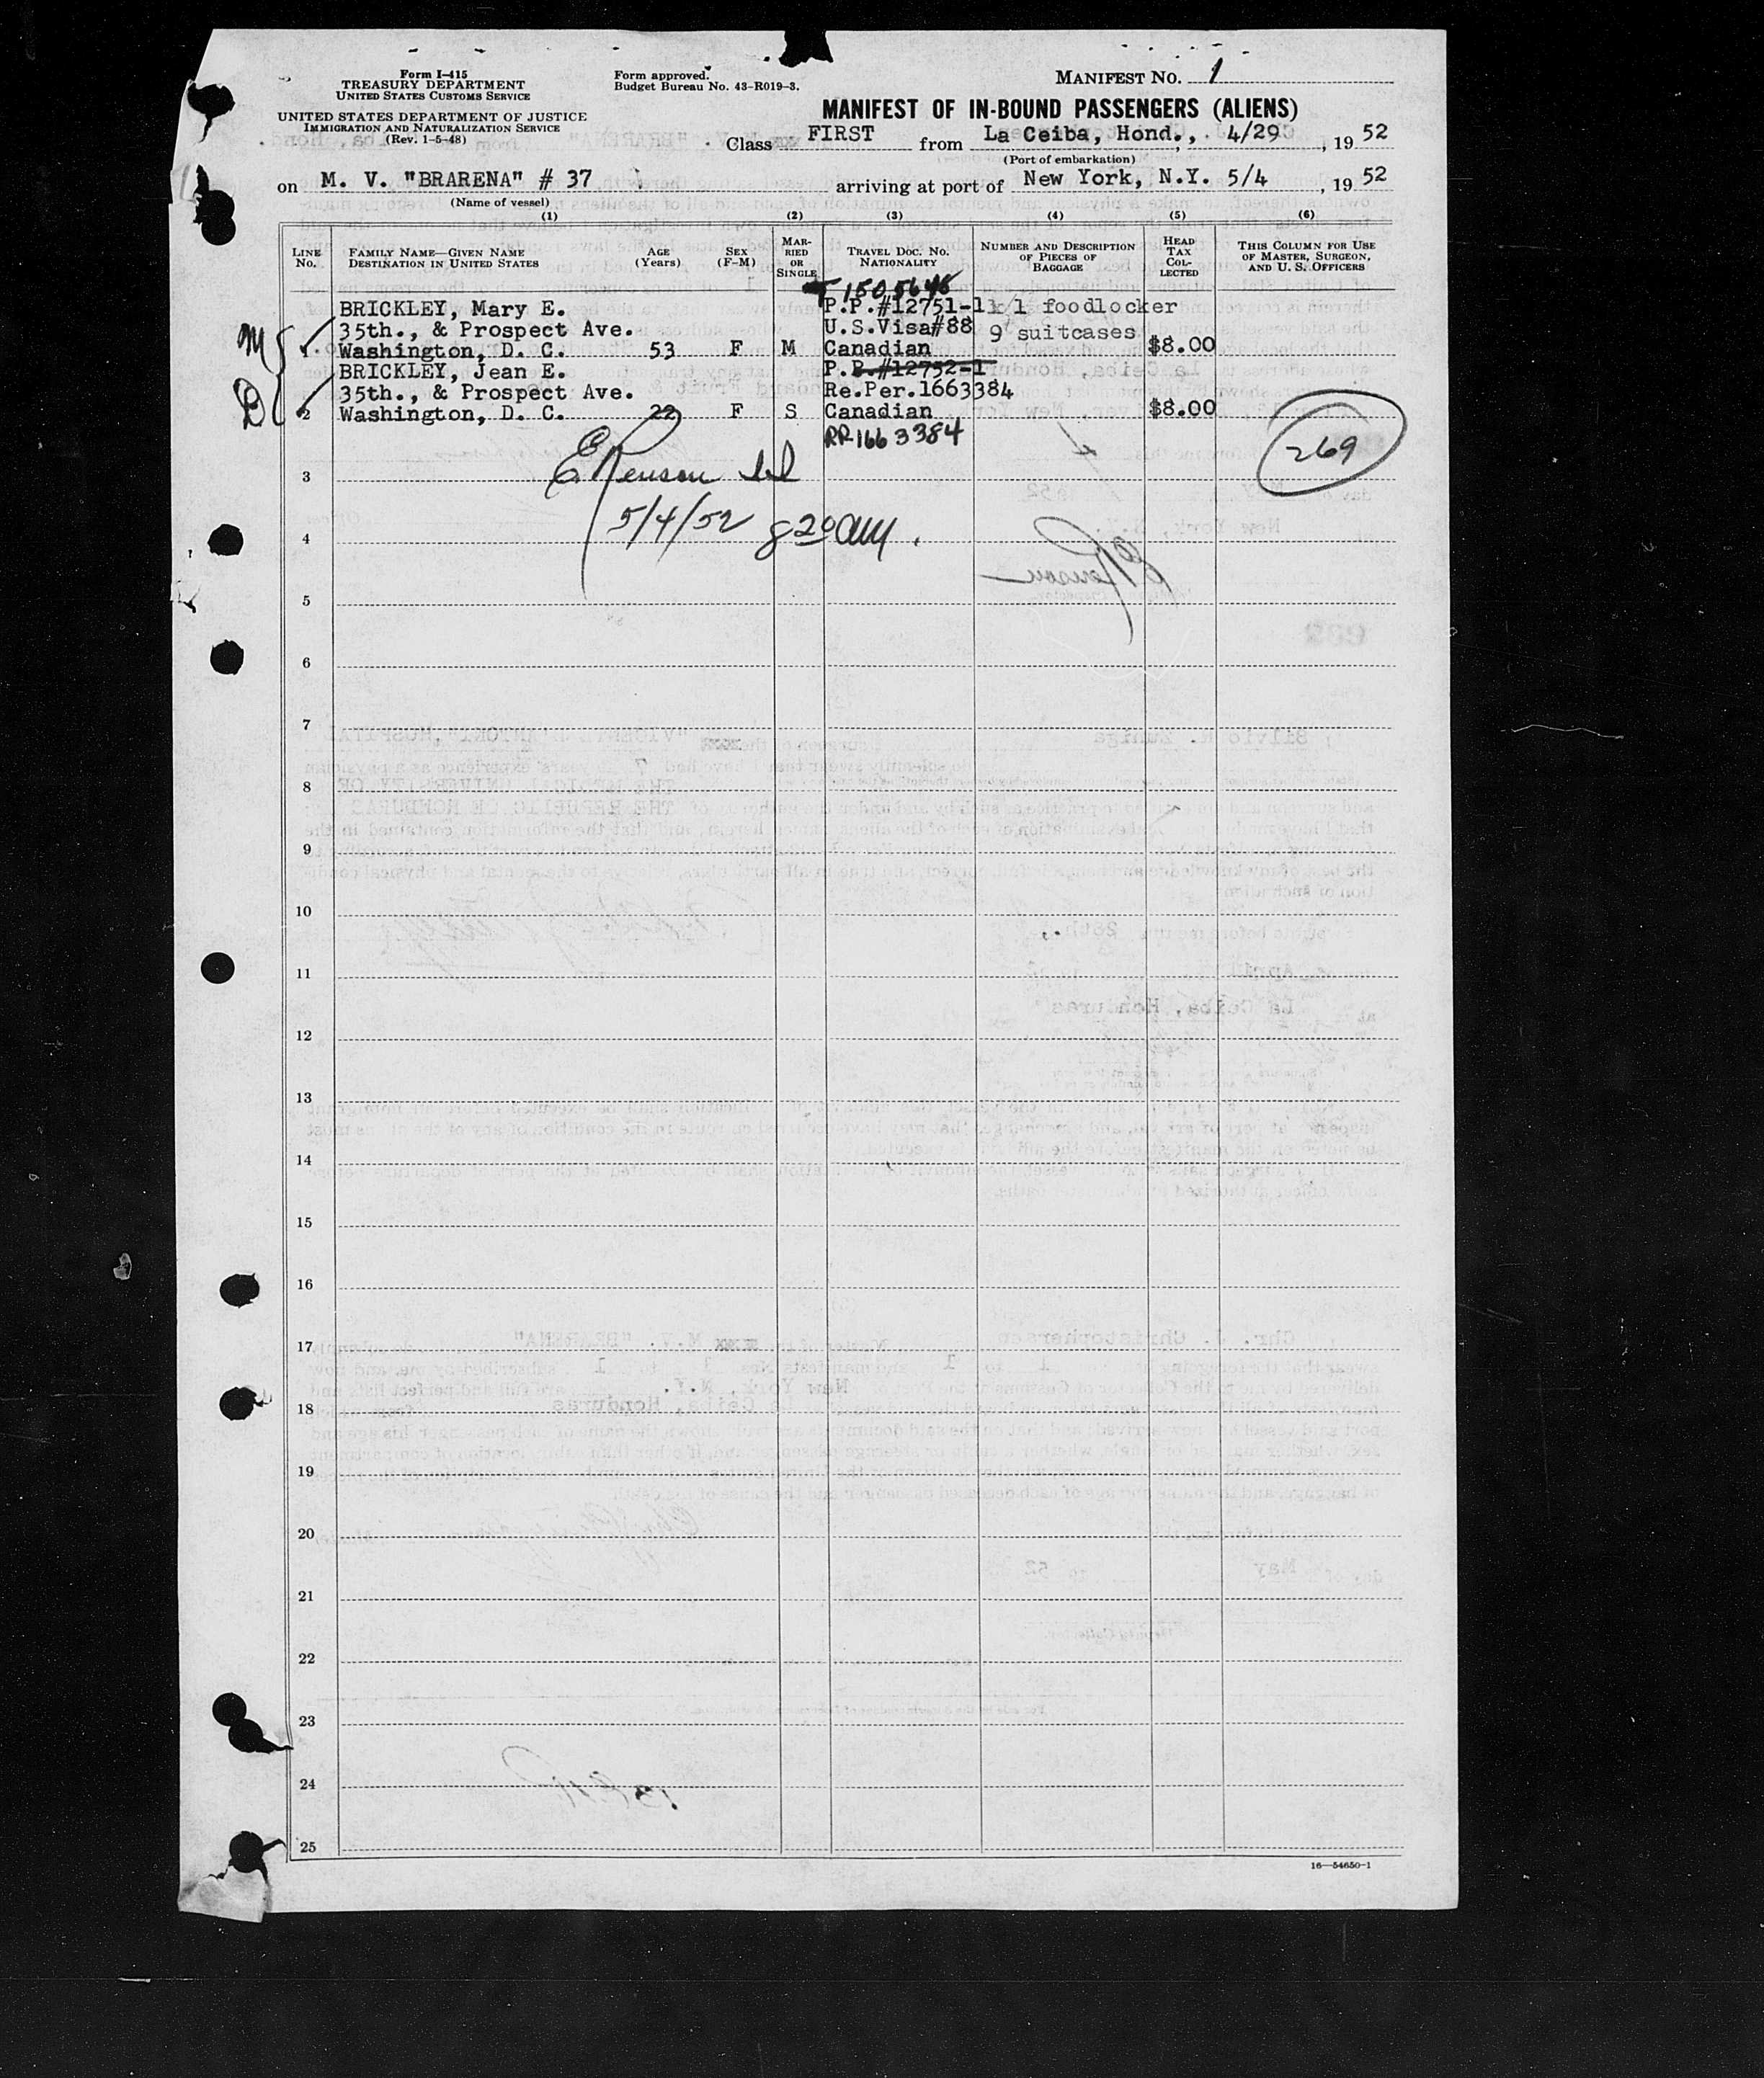 Form I-415
TREASURY DEPARTMENT
UNITED STATES CUSTOMS SERVICE
UNITED STATES DEPARTMENT OF JUSTICE
IMMIGRATION AND NATURALIZATION SERVICE
(Rev. 1-5-48)
Form approved.
Budget Bureau No. 43-R019-3.
MANIFEST NO. 1
MANIFEST OF IN-BOUND PASSENGERS (ALIENS)
Class FIRST from La Ceiba, Hond., 4/29, 19 52
(Port of embarkation)
on M. V. "BRARENA" # 37 arriving at port of New York, N.Y. 5/4, 19 52
(Name of vessel)
(1) (2) (3) (4) (5) (6)
LINE No. FAMILY NAME—GIVEN NAME DESTINATION IN UNITED STATES AGE (Years) SEX (F-M) MARRIED OR SINGLE TRAVEL DOC. NO. NATIONALITY NUMBER AND DESCRIPTION OF PIECES OF BAGGAGE HEAD TAX COLLECTED THIS COLUMN FOR USE OF MASTER, SURGEON, AND U. S. OFFICERS
BRICKLEY, Mary E. P.P.#12751-1 1 foodlocker
35th., & Prospect Ave. U.S.Visa#88 9 suitcases
1 Washington, D. C. 53 F M Canadian $8.00
BRICKLEY, Jean E. P.P.#12752-1
35th., & Prospect Ave. Re.Per.1663384
2 Washington, D. C. 22 F S Canadian $8.00
RR1663384
269
3
5/4/52 8 20 AM.
4
5
6
7
8
9
10
11
12
13
14
15
16
17
18
19
20
21
22
23
24
25
16—54650-1